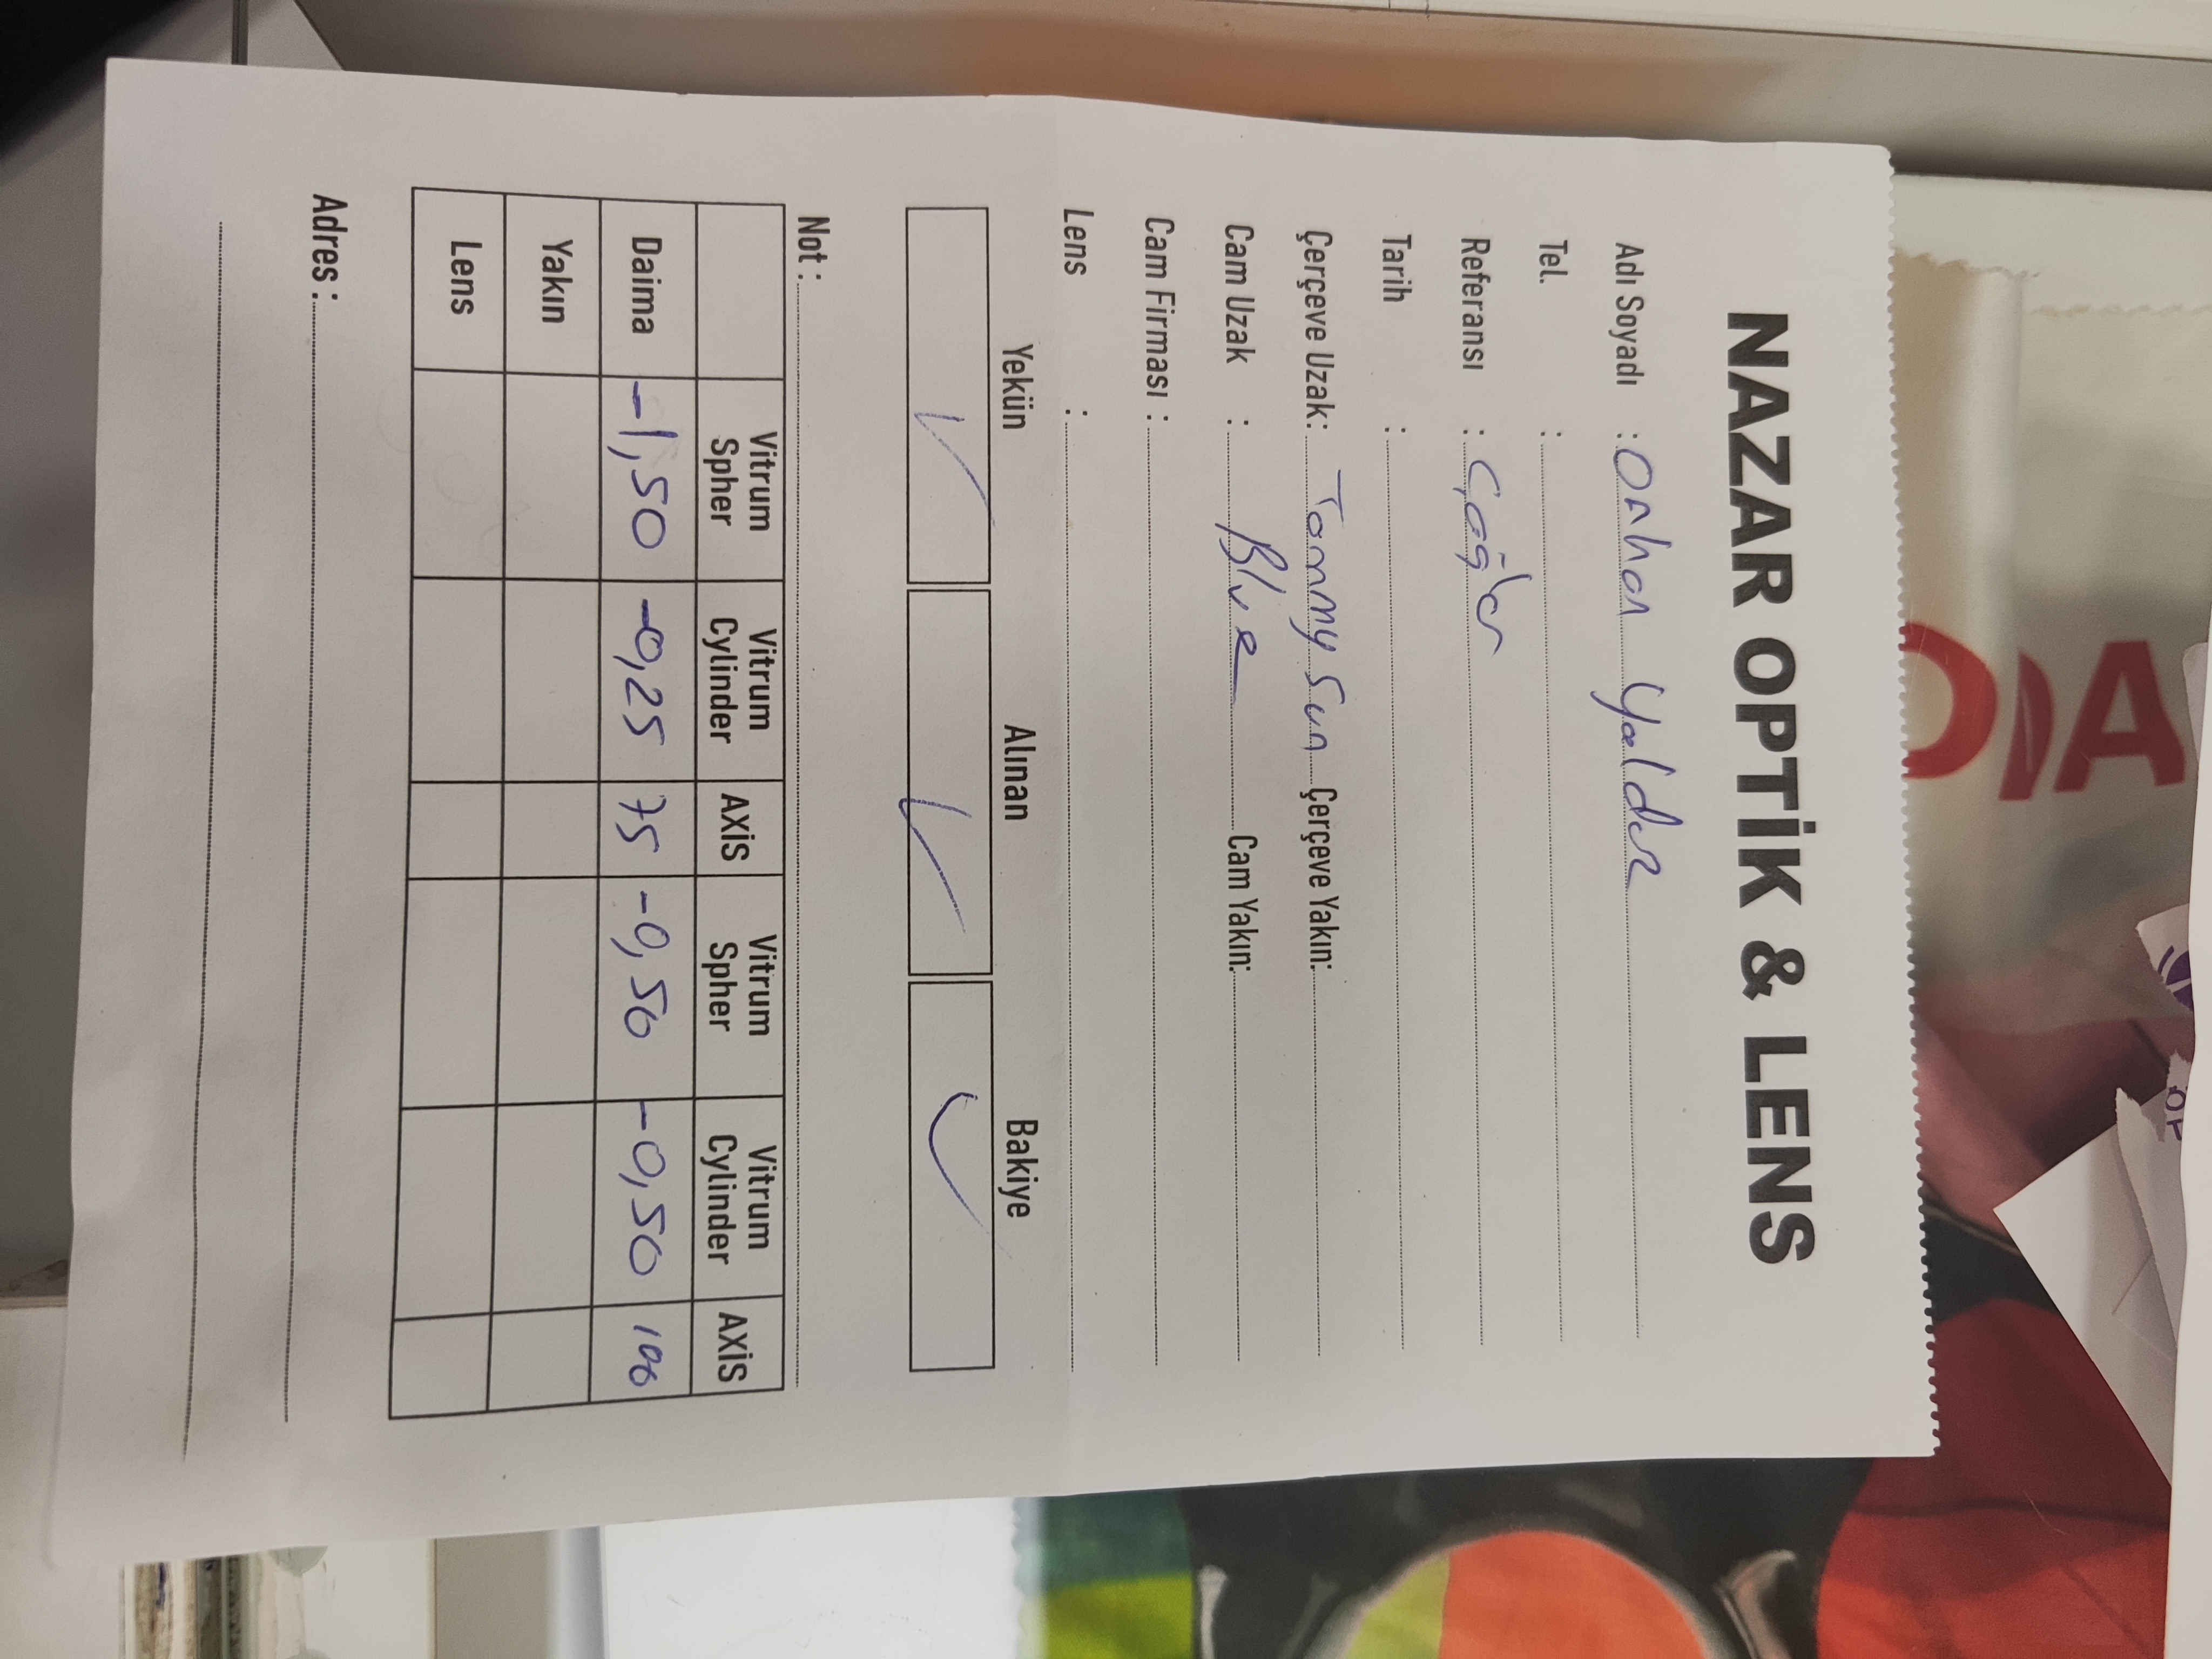 NAZAR OPTİK & LENS
Adı Soyadı : Orhan Yaldız
Tel. :
Referansı : Çağlar
Tarih :
Çerçeve Uzak: Tommy Sun Çerçeve Yakın:
Cam Uzak : Blue Cam Yakın:
Cam Firması :
Lens :
Yekün Alınan Bakiye
Not :
Vitrum Spher Vitrum Cylinder AXİS Vitrum Spher Vitrum Cylinder AXİS
Daima -1,50 -0,25 75 -0,50 -0,50 100
Yakın
Lens
Adres :